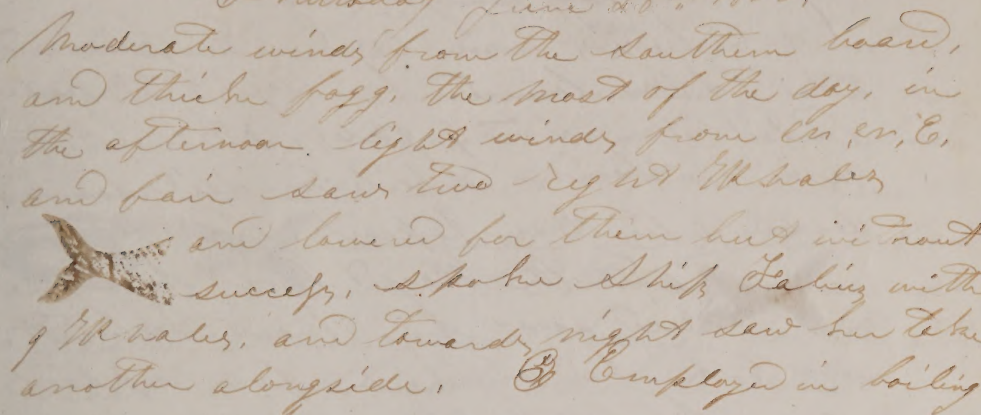 Thursday June 20
Moderate winds from the Southern board,
and thick fogg. the most of the day, in
the afternoon light winds from E.
and fair saw two right Whales
and lowered for them but without
success, spoke Ship Fabius with
9 Whales, and towards night saw her take
another alongside. Employed in boiling